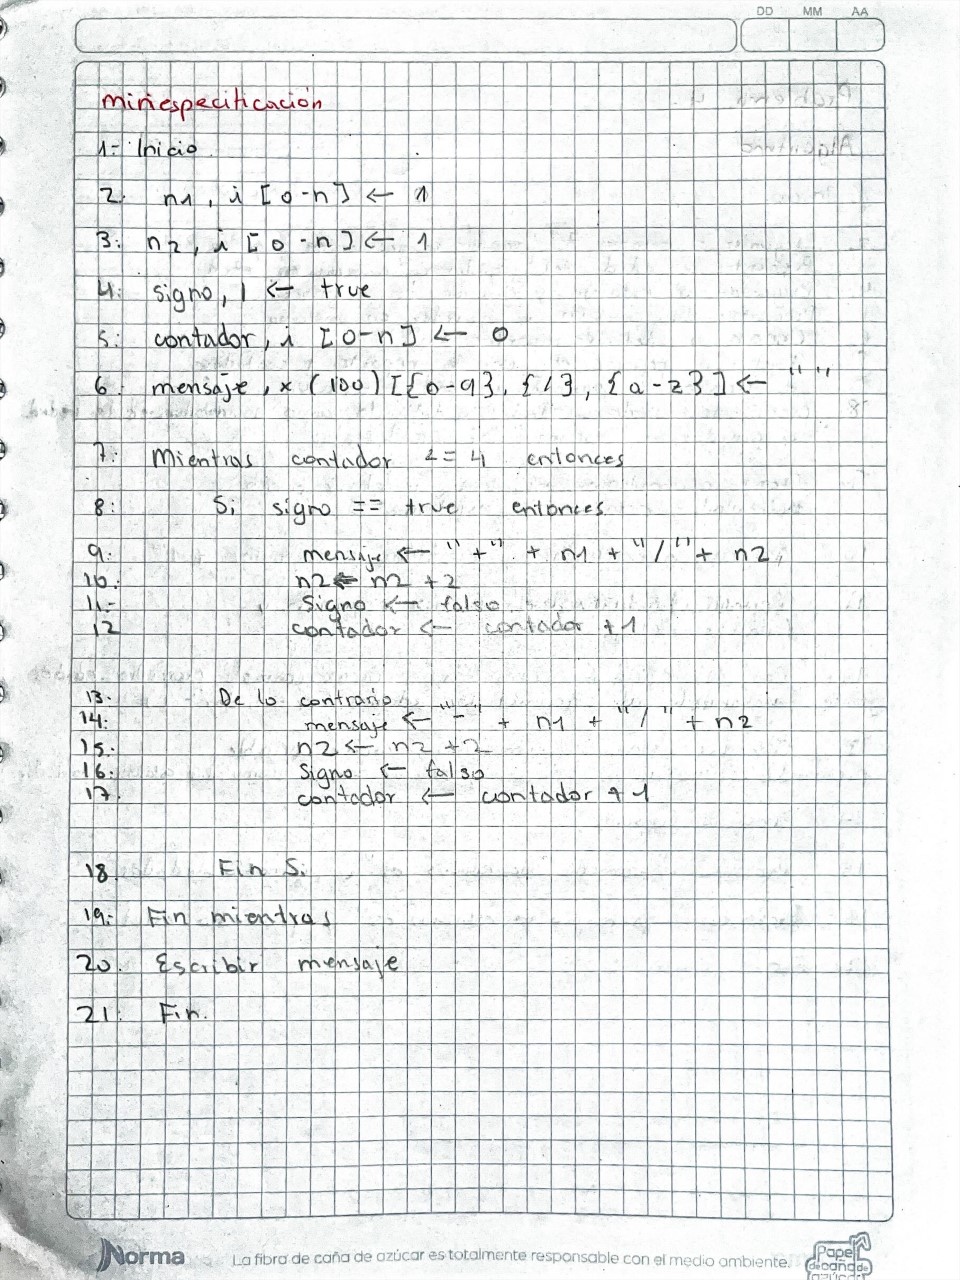 DD MM AA
miniespecificación
1- Inicio.
2: n1, i [0-n] ← 1
3: n2, i [0-n] ← 1
4: signo, l ← true
5: contador, i [0-n] ← 0
6: mensaje, x (100) [{0-9}, {/}, {a-z}] ← " "
7: Mientras contador <= 4 entonces
8: Si signo == true entonces
9: mensaje ← "+" + n1 + "/" + n2
10: n2 ← n2 + 2
11- Signo ← falso
12 contador ← contador + 1
13. De lo contrario
14: mensaje ← "-" + n1 + "/" + n2
15: n2 ← n2 + 2
16. Signo ← falso
17. contador ← contador + 1
18. Fin Si
19: Fin mientras
20. Escribir mensaje
21: Fin.
Norma La fibra de caña de azúcar es totalmente responsable con el medio ambiente. Papel de caña de azúcar